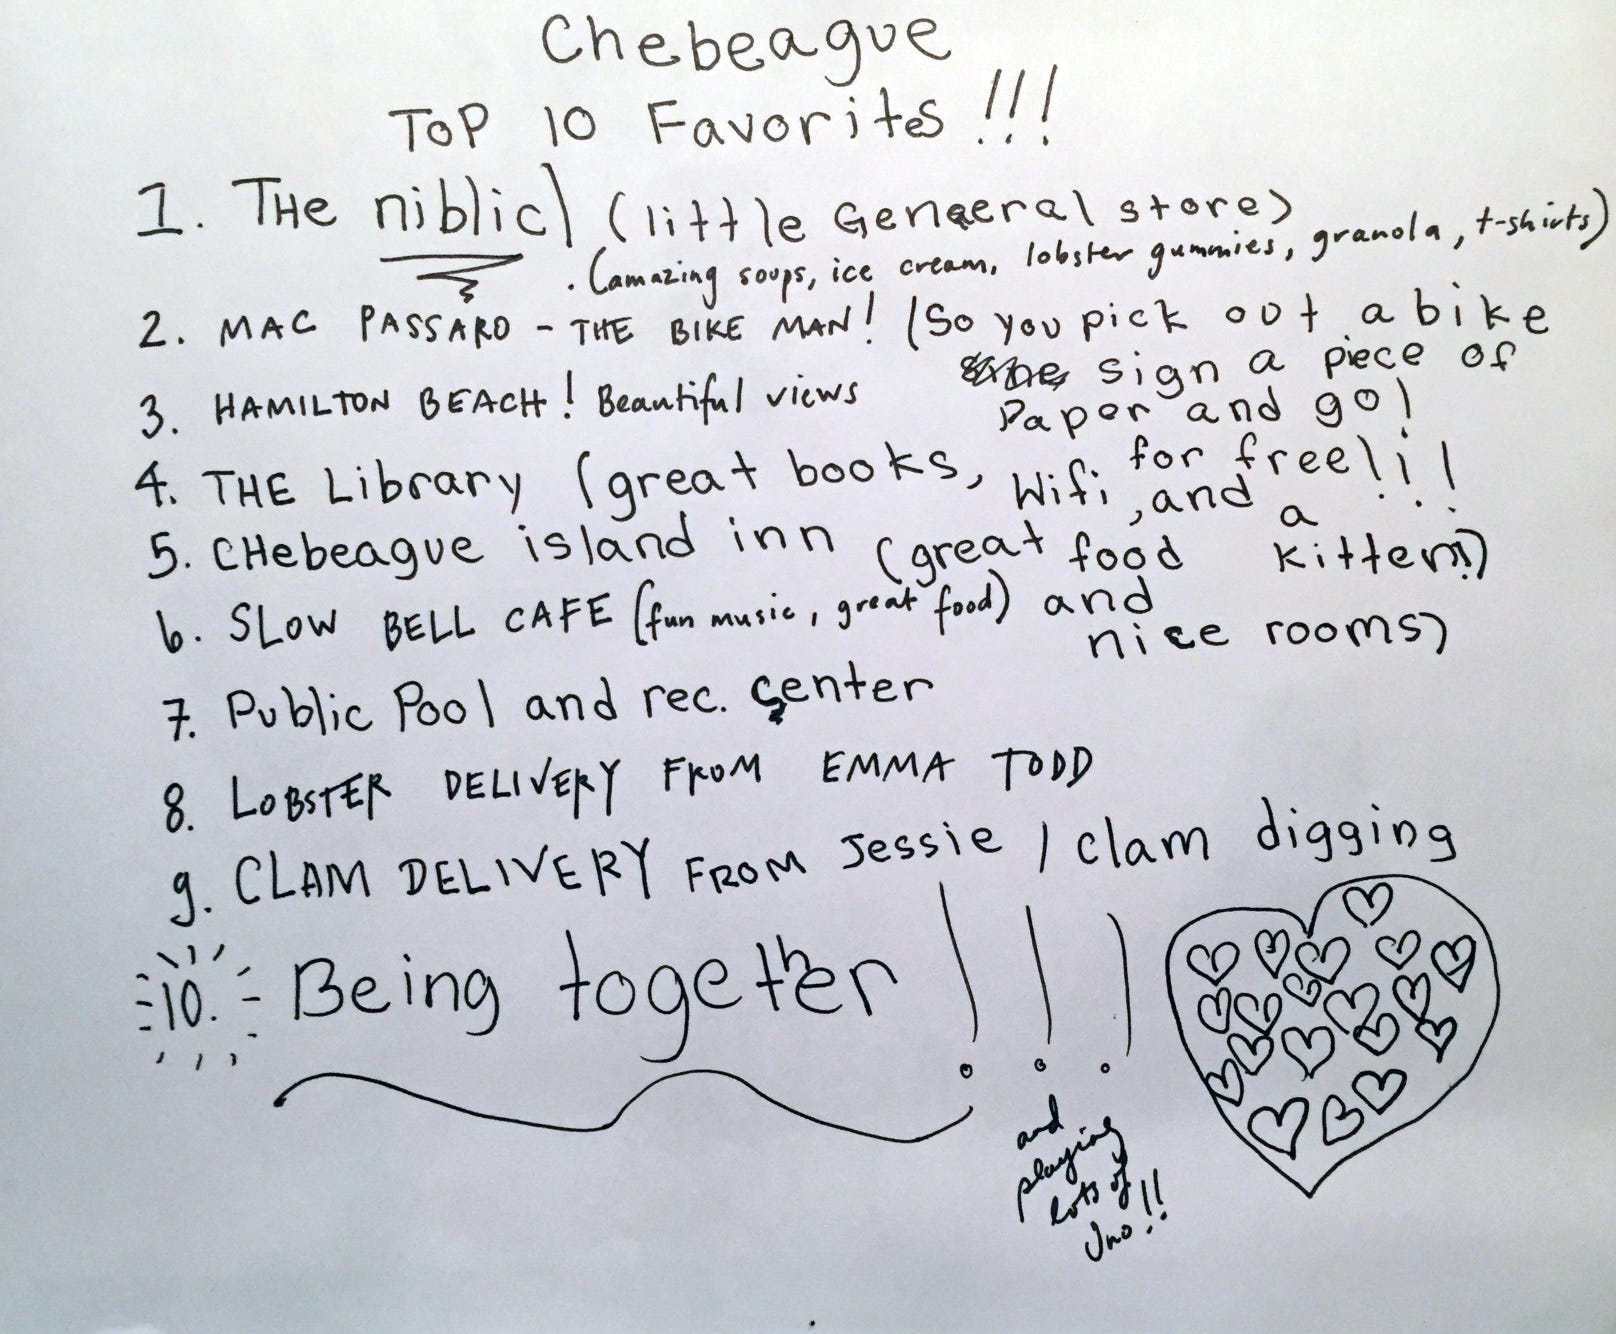 Chebeague
TOP 10 Favorites!!!
1. THe niblic) (little Genaeral store)
. (amazing soups, ice cream, lobster gummies, granola, t-shirts)
2. MAC PASSARO - THE BIKE MAN! (So you pick out a bike
sign a piece of
Paper and go)
3. HAMILTON BEACH! Beautiful views
4. THE Library (great books, Wifi for free!¡!
, and a
kitten!)
5. CHebeague island inn (great food
and
nice rooms)
6. SLOW BELL CAFE (fun music, great food)
7. Public Pool and rec. center
8. LOBSTER DELIVERY FROM EMMA TODD
9. CLAM DELIVERY FROM Jessie / clam digging
10. Being together!!!
and
playing
lots of
Uno!!